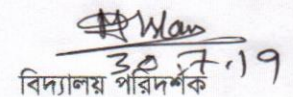 30.7.19
বিদ্যালয় পরিদর্শক